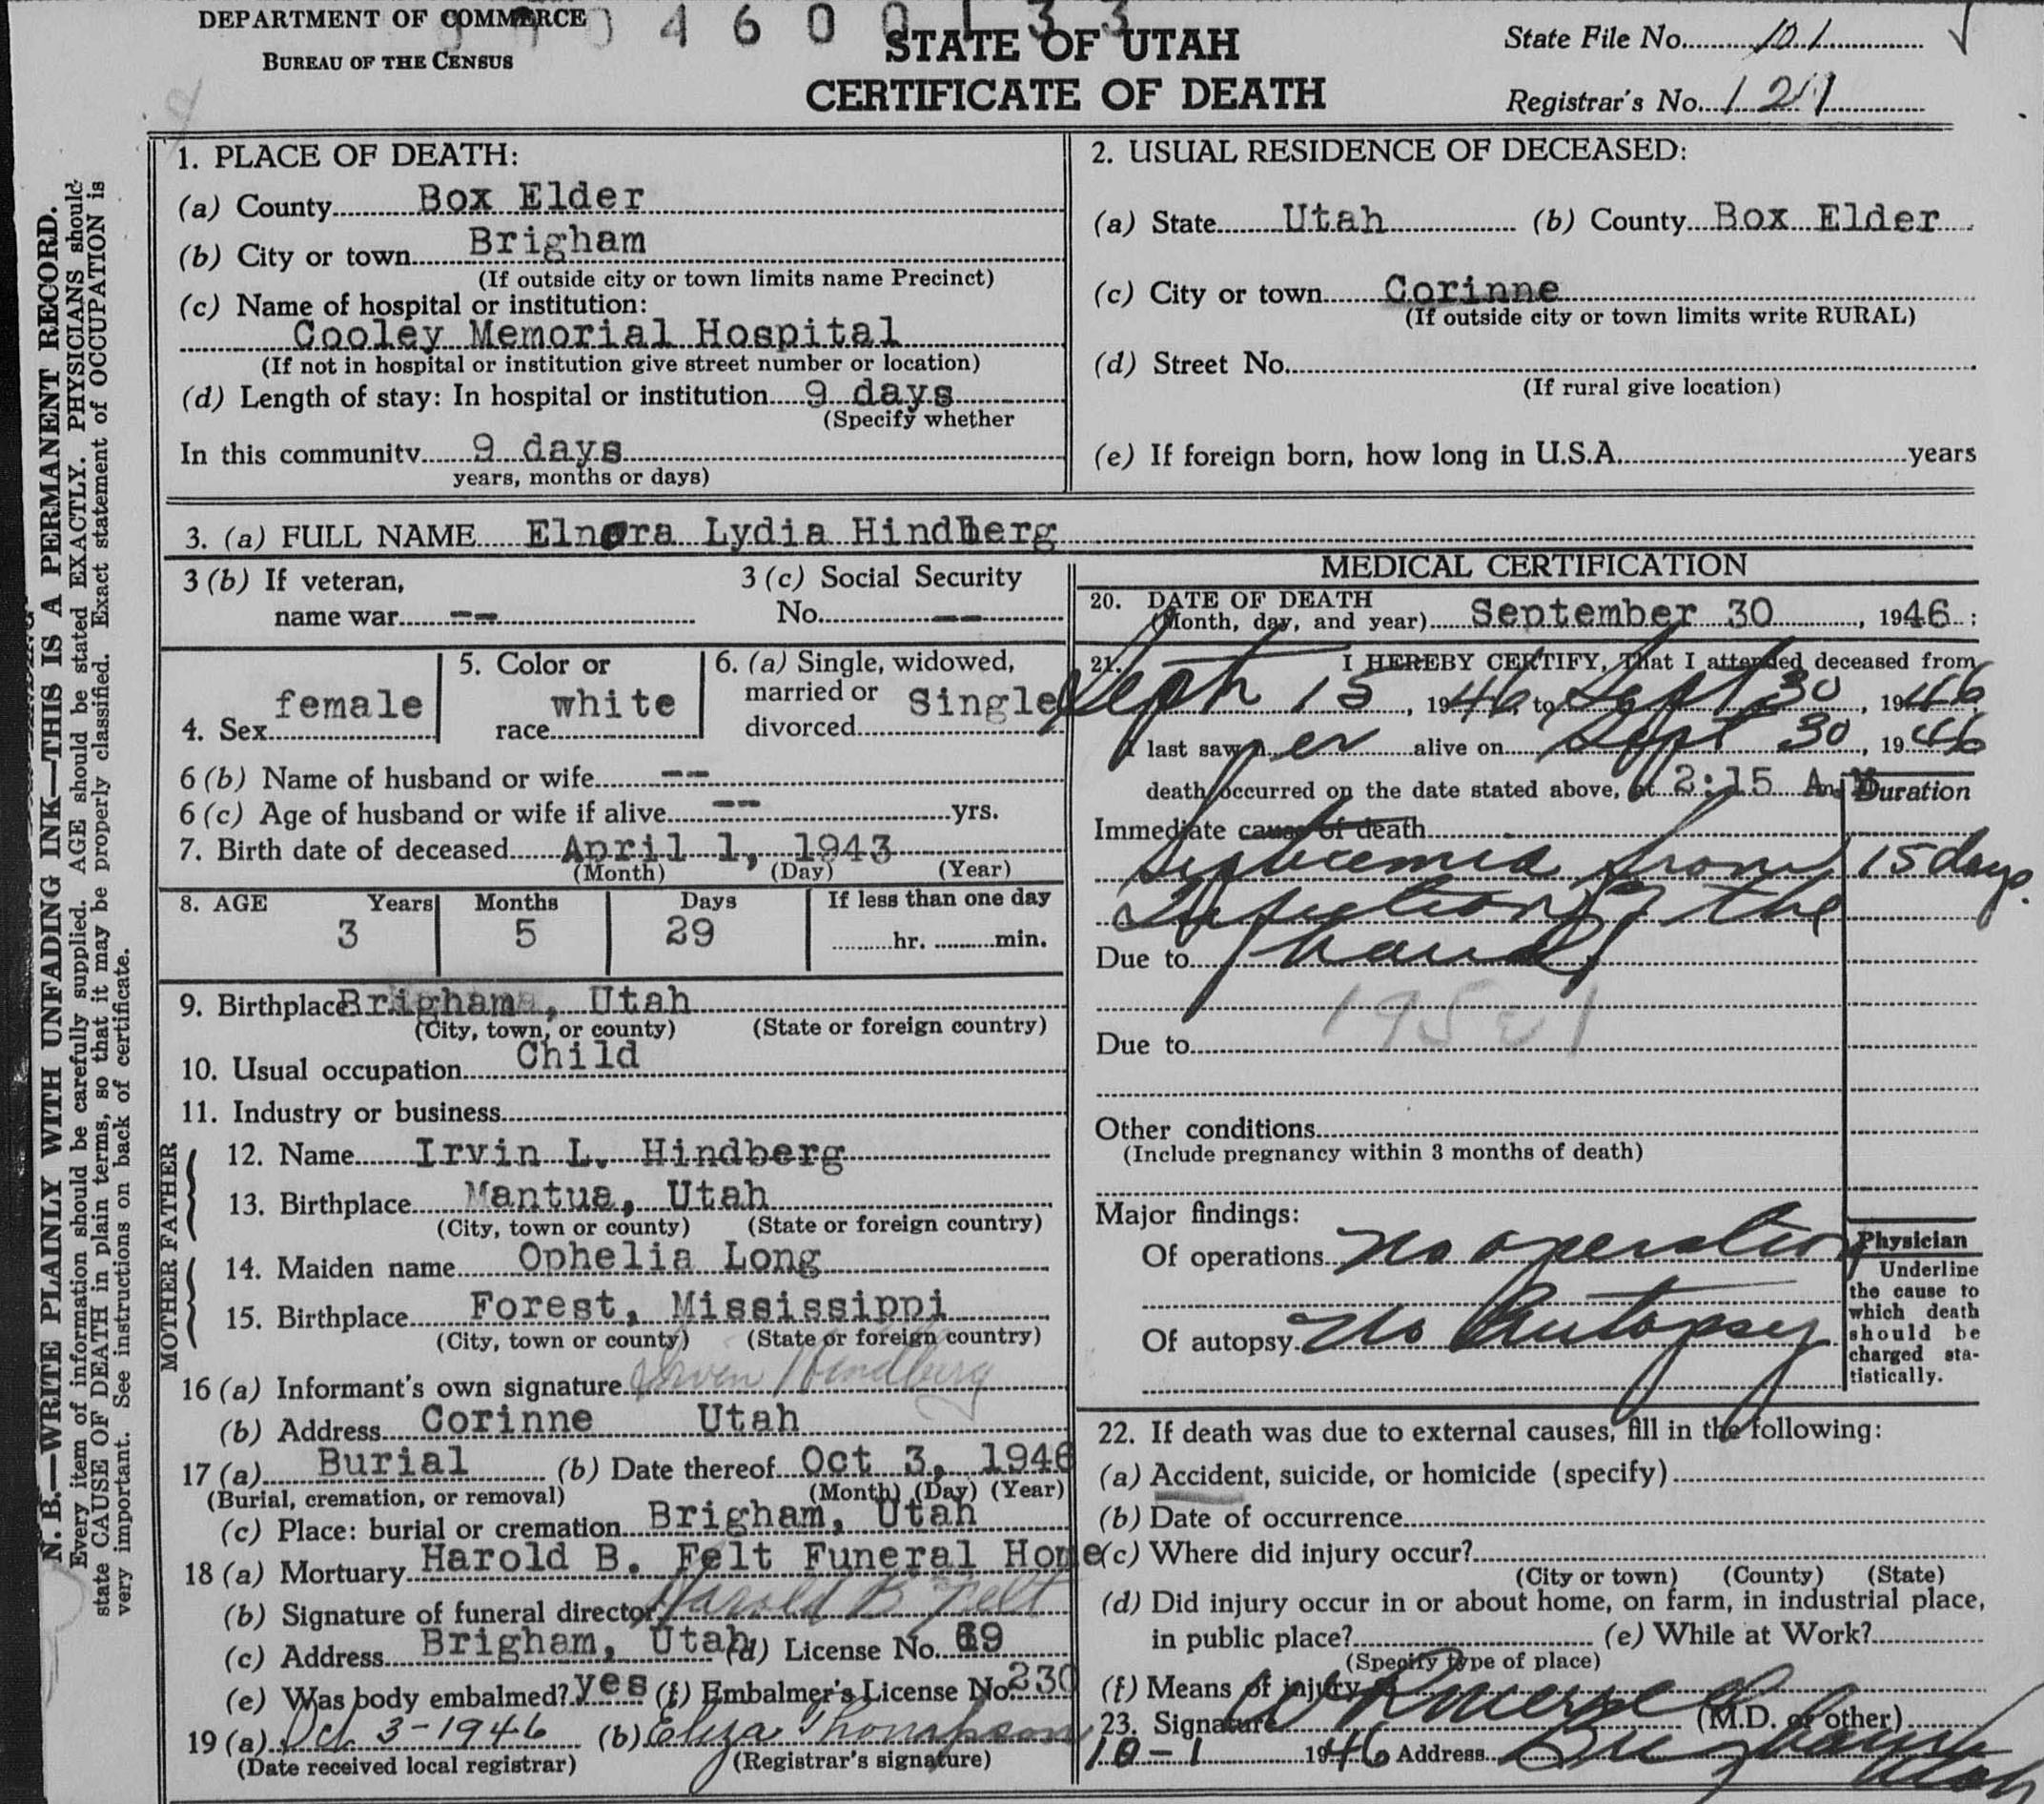 DEPARTMENT OF COMMERCE
BUREAU OF THE CENSUS
4 6 0 0 1 3 3
STATE OF UTAH
CERTIFICATE OF DEATH
State File No. 101
Registrar's No. 121
N. B.—WRITE PLAINLY WITH UNFADING INK—THIS IS A PERMANENT RECORD.
Every item of information should be carefully supplied. AGE should be stated EXACTLY. PHYSICIANS should
state CAUSE OF DEATH in plain terms, so that it may be properly classified. Exact statement of OCCUPATION is
very important. See instructions on back of certificate.
1. PLACE OF DEATH:
(a) County Box Elder
(b) City or town Brigham
(If outside city or town limits name Precinct)
(c) Name of hospital or institution:
Cooley Memorial Hospital
(If not in hospital or institution give street number or location)
(d) Length of stay: In hospital or institution 9 days
(Specify whether
In this community 9 days
years, months or days)
2. USUAL RESIDENCE OF DECEASED:
(a) State Utah (b) County Box Elder
(c) City or town Corinne
(If outside city or town limits write RURAL)
(d) Street No.
(If rural give location)
(e) If foreign born, how long in U.S.A. years
3. (a) FULL NAME Elnora Lydia Hindberg
3 (b) If veteran, name war --
3 (c) Social Security No. --
4. Sex female
5. Color or race white
6. (a) Single, widowed, married or divorced Single
6 (b) Name of husband or wife --
6 (c) Age of husband or wife if alive -- yrs.
7. Birth date of deceased April 1, 1943
(Month) (Day) (Year)
8. AGE Years Months Days If less than one day
3 5 29 hr. min.
9. Birthplace Brigham, Utah
(City, town, or county) (State or foreign country)
10. Usual occupation Child
11. Industry or business
FATHER
12. Name Irvin L. Hindberg
13. Birthplace Mantua, Utah
(City, town or county) (State or foreign country)
MOTHER
14. Maiden name Ophelia Long
15. Birthplace Forest, Mississippi
(City, town or county) (State or foreign country)
16 (a) Informant's own signature Irven Hindberg
(b) Address Corinne Utah
17 (a) Burial (b) Date thereof Oct 3, 1946
(Burial, cremation, or removal) (Month) (Day) (Year)
(c) Place: burial or cremation Brigham, Utah
18 (a) Mortuary Harold B. Felt Funeral Home
(b) Signature of funeral director Harold B Felt
(c) Address Brigham, Utah (d) License No. 69
(e) Was body embalmed? yes (f) Embalmer's License No. 230
19 (a) Oct. 3-1946 (b) Eliza Thompson
(Date received local registrar) (Registrar's signature)
MEDICAL CERTIFICATION
20. DATE OF DEATH
(Month, day, and year) September 30, 1946:
21. I HEREBY CERTIFY, That I attended deceased from
Sept 15, 1946, to Sept 30, 1946
I last saw her alive on Sept 30, 1946
death occurred on the date stated above, at 2:15 A.M.
Duration
Immediate cause of death
Septicemia from 15 days.
Infection of the
Due to hand
Due to
Other conditions
(Include pregnancy within 3 months of death)
Major findings:
Of operations no operation
Of autopsy No Autopsy
Physician
Underline
the cause to
which death
should be
charged sta-
tistically.
22. If death was due to external causes, fill in the following:
(a) Accident, suicide, or homicide (specify)
(b) Date of occurrence
(c) Where did injury occur?
(City or town) (County) (State)
(d) Did injury occur in or about home, on farm, in industrial place,
in public place? (e) While at Work?
(Specify type of place)
(f) Means of injury
23. Signature (M.D. or other)
10-1 1946 Address Brigham Utah